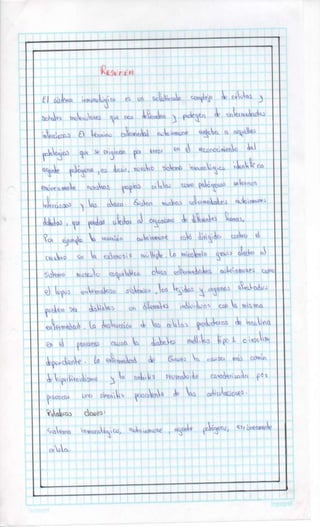 Resumen
El sistema inmunológico es un sofisticado complejo de células y
que nos defienden y protegen de enfermedades
infecciosas. El término enfermedad autoinmune engloba a aquellas
patologías que se originan por error en el reconocimiento del
agente patógeno, es decir, nuestro sistema inmunológico identifica
erróneamente nuestras propias células como patógenos
y las ataca. Existen muchas enfermedades autoinmunes
que pueden afectar al organismo de diferentes formas.
Por ejemplo la reacción autoinmune está dirigida contra el
cerebro en la esclerosis múltiple. La miastenia gravis afecta al
sistema musculo esquelético. Otras enfermedades autoinmunes como
el lupus eritematoso sistémico, los tejidos y órganos afectados
pueden ser distintos en diferentes individuos con la misma
enfermedad. La destrucción de las células productoras de insulina
en el páncreas causa la diabetes mellitus tipo 1 o insulino
dependiente. La enfermedad de Graves la causa más común
de hipertiroidismo y la artritis reumatoide caracterizada por
provocar una sinovitis de las articulaciones.
Palabras claves:
Sistema inmunológico, autoinmune, agente patógeno, erróneamente
célula.